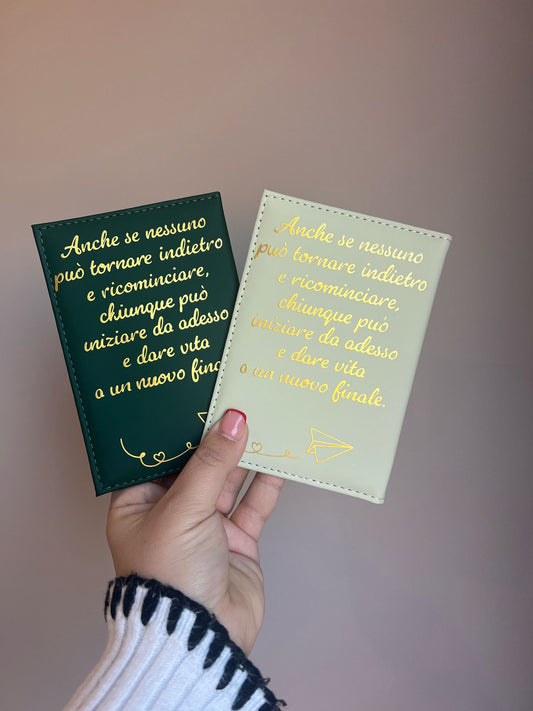 Anche se nessuno
può tornare indietro
e ricominciare,
chiunque può
iniziare da adesso
e dare vita
a un nuovo fina
Anche se nessuno
può tornare indietro
e ricominciare,
chiunque può
iniziare da adesso
e dare vita
a un nuovo finale.